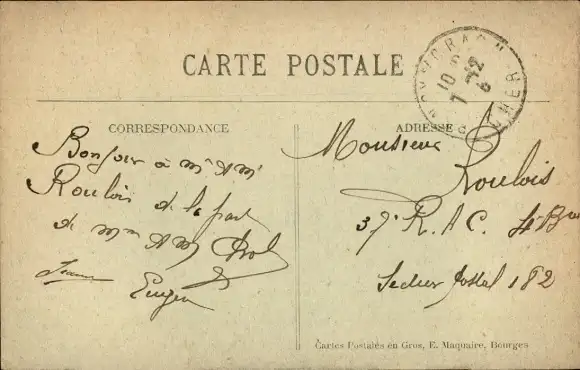 CARTE POSTALE
CORRESPONDANCE
Bonjour à mr & mme
Roulois de la part
de mme & mr
Eugen
ADRESSE
Monsieur
Roulois
37e R.A.C. 4e Bie
Secteur Postal 182
Cartes Postales en Gros, E. Maquaire, Bourges